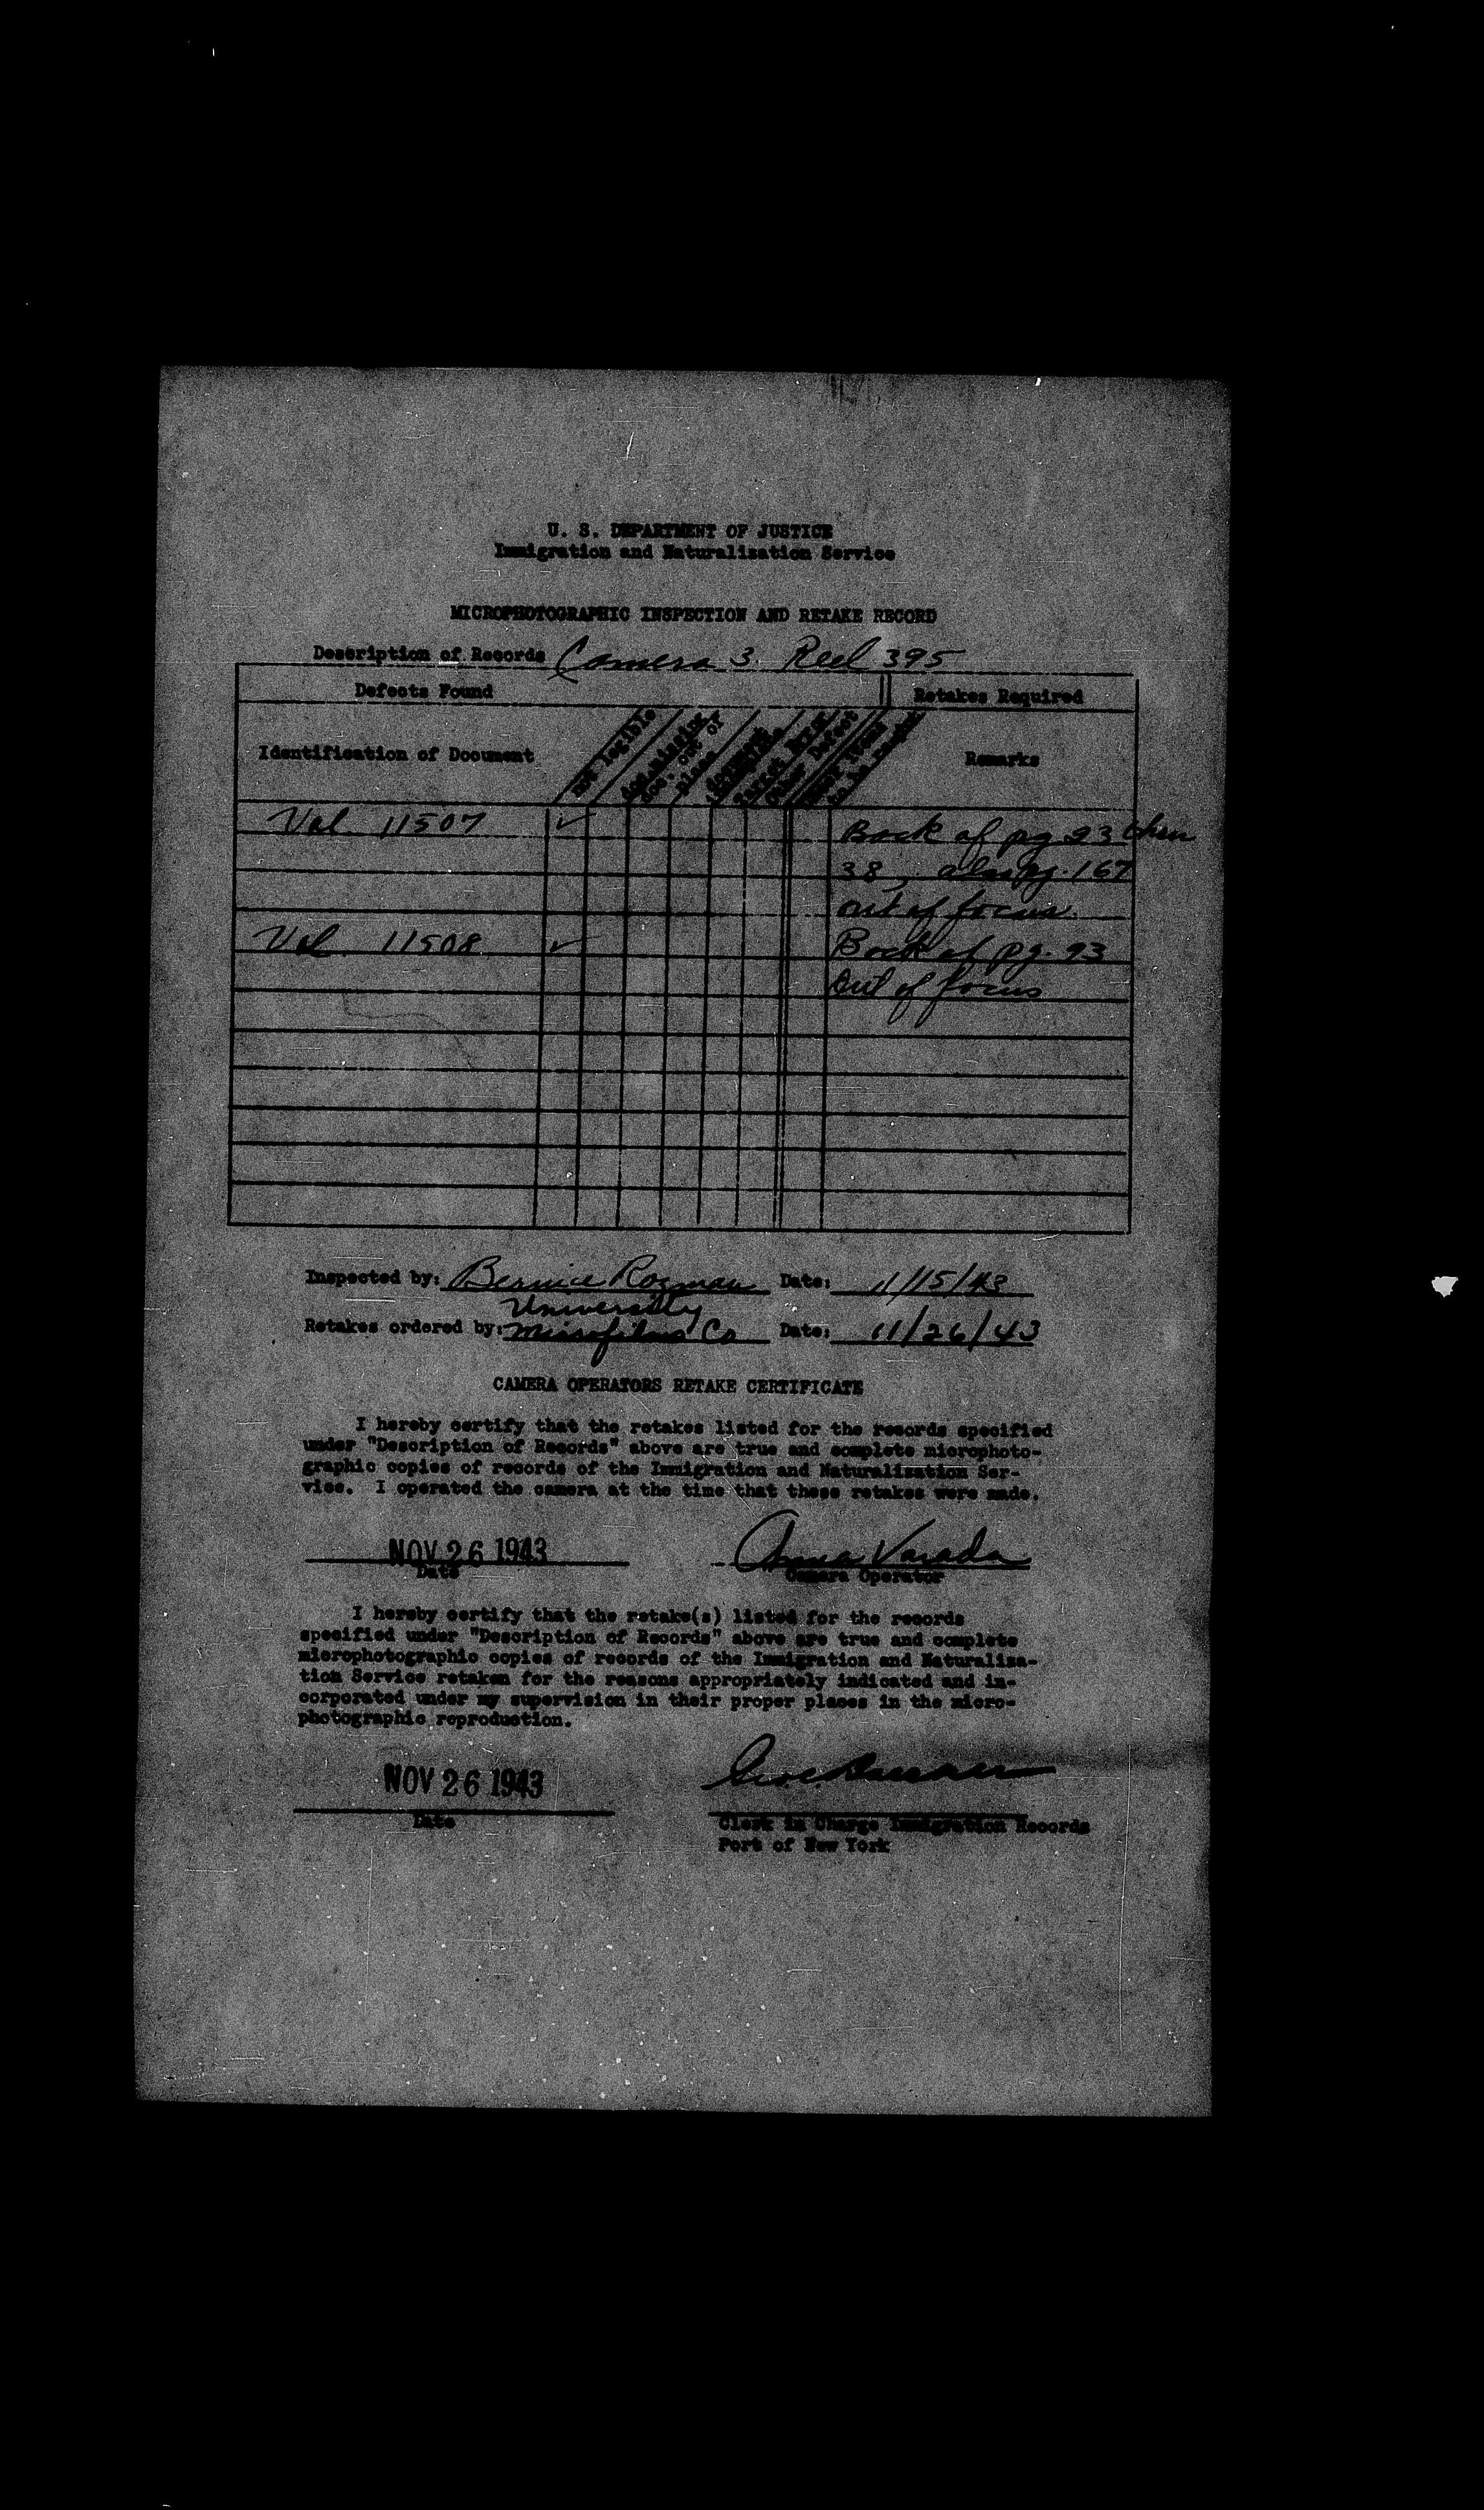 U. S. DEPARTMENT OF JUSTICE
Immigration and Naturalization Service
MICROPHOTOGRAPHIC INSPECTION AND RETAKE RECORD
Description of Records Camera 3. Reel 395
Defects Found
Retakes Required
Identification of Document
not legible
doc. missing
doc. out of place
Remarks
Vol. 11507 ✓ Back of pg. 23 thru
38, also pg. 167
out of focus.
Vol. 11508 ✓ Back of pg. 93
out of focus
Inspected by: Bernice Rozman Date: 11/15/43
University
Retakes ordered by: Microfilms Co Date: 11/26/43
CAMERA OPERATORS RETAKE CERTIFICATE
I hereby certify that the retakes listed for the records specified
under "Description of Records" above are true and complete microphoto-
graphic copies of records of the Immigration and Naturalization Ser-
vice. I operated the camera at the time that these retakes were made.
NOV 26 1943 Anna Varada
Date Camera Operator
I hereby certify that the retake(s) listed for the records
specified under "Description of Records" above are true and complete
microphotographic copies of records of the Immigration and Naturaliza-
tion Service retaken for the reasons appropriately indicated and in-
corporated under my supervision in their proper places in the micro-
photographic reproduction.
NOV 26 1943
Date Clerk in Charge Immigration Records
Port of New York